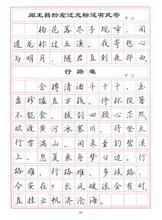 闻王昌龄左迁龙标遥有此寄
杨花落尽子规啼闻
道龙标过五溪我寄愁心
与明月随君直到夜郎西
行路难
金樽清酒斗十千玉
盘珍羞直万钱停杯投箸
不能食拔剑四顾心茫然
欲渡黄河冰塞川将登太
行雪满山闲来垂钓碧溪
上忽复乘舟梦日边行
路难行路难多歧路
今安在长风破浪会有时
直挂云帆济沧海